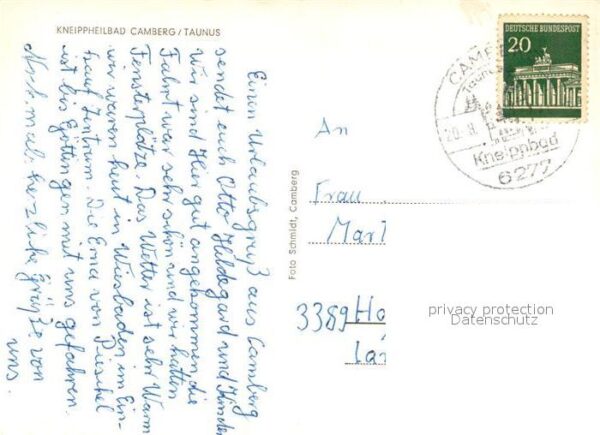 KNEIPPHEILBAD CAMBERG / TAUNUS
Einen Urlaubsgruß aus Camberg
sendet euch Otto Hildegard und Kinder
Wir sind Hier gut angekommen die
Fahrt war sehr schön und wir hatten
Fensterplätze. Das Wetter ist sehr Warm
wir waren heut in Wiesbaden im Ein-
kauf zentrum. Die Erna von
ist bis Göttingen mit uns gefahren.
Noch mal herzliche Grüße von
uns.
Foto Schmidt, Camberg
DEUTSCHE BUNDESPOST
20
Kneippbad
6277
An
Frau
Mart
3389 Ho
privacy protection
Datenschutz